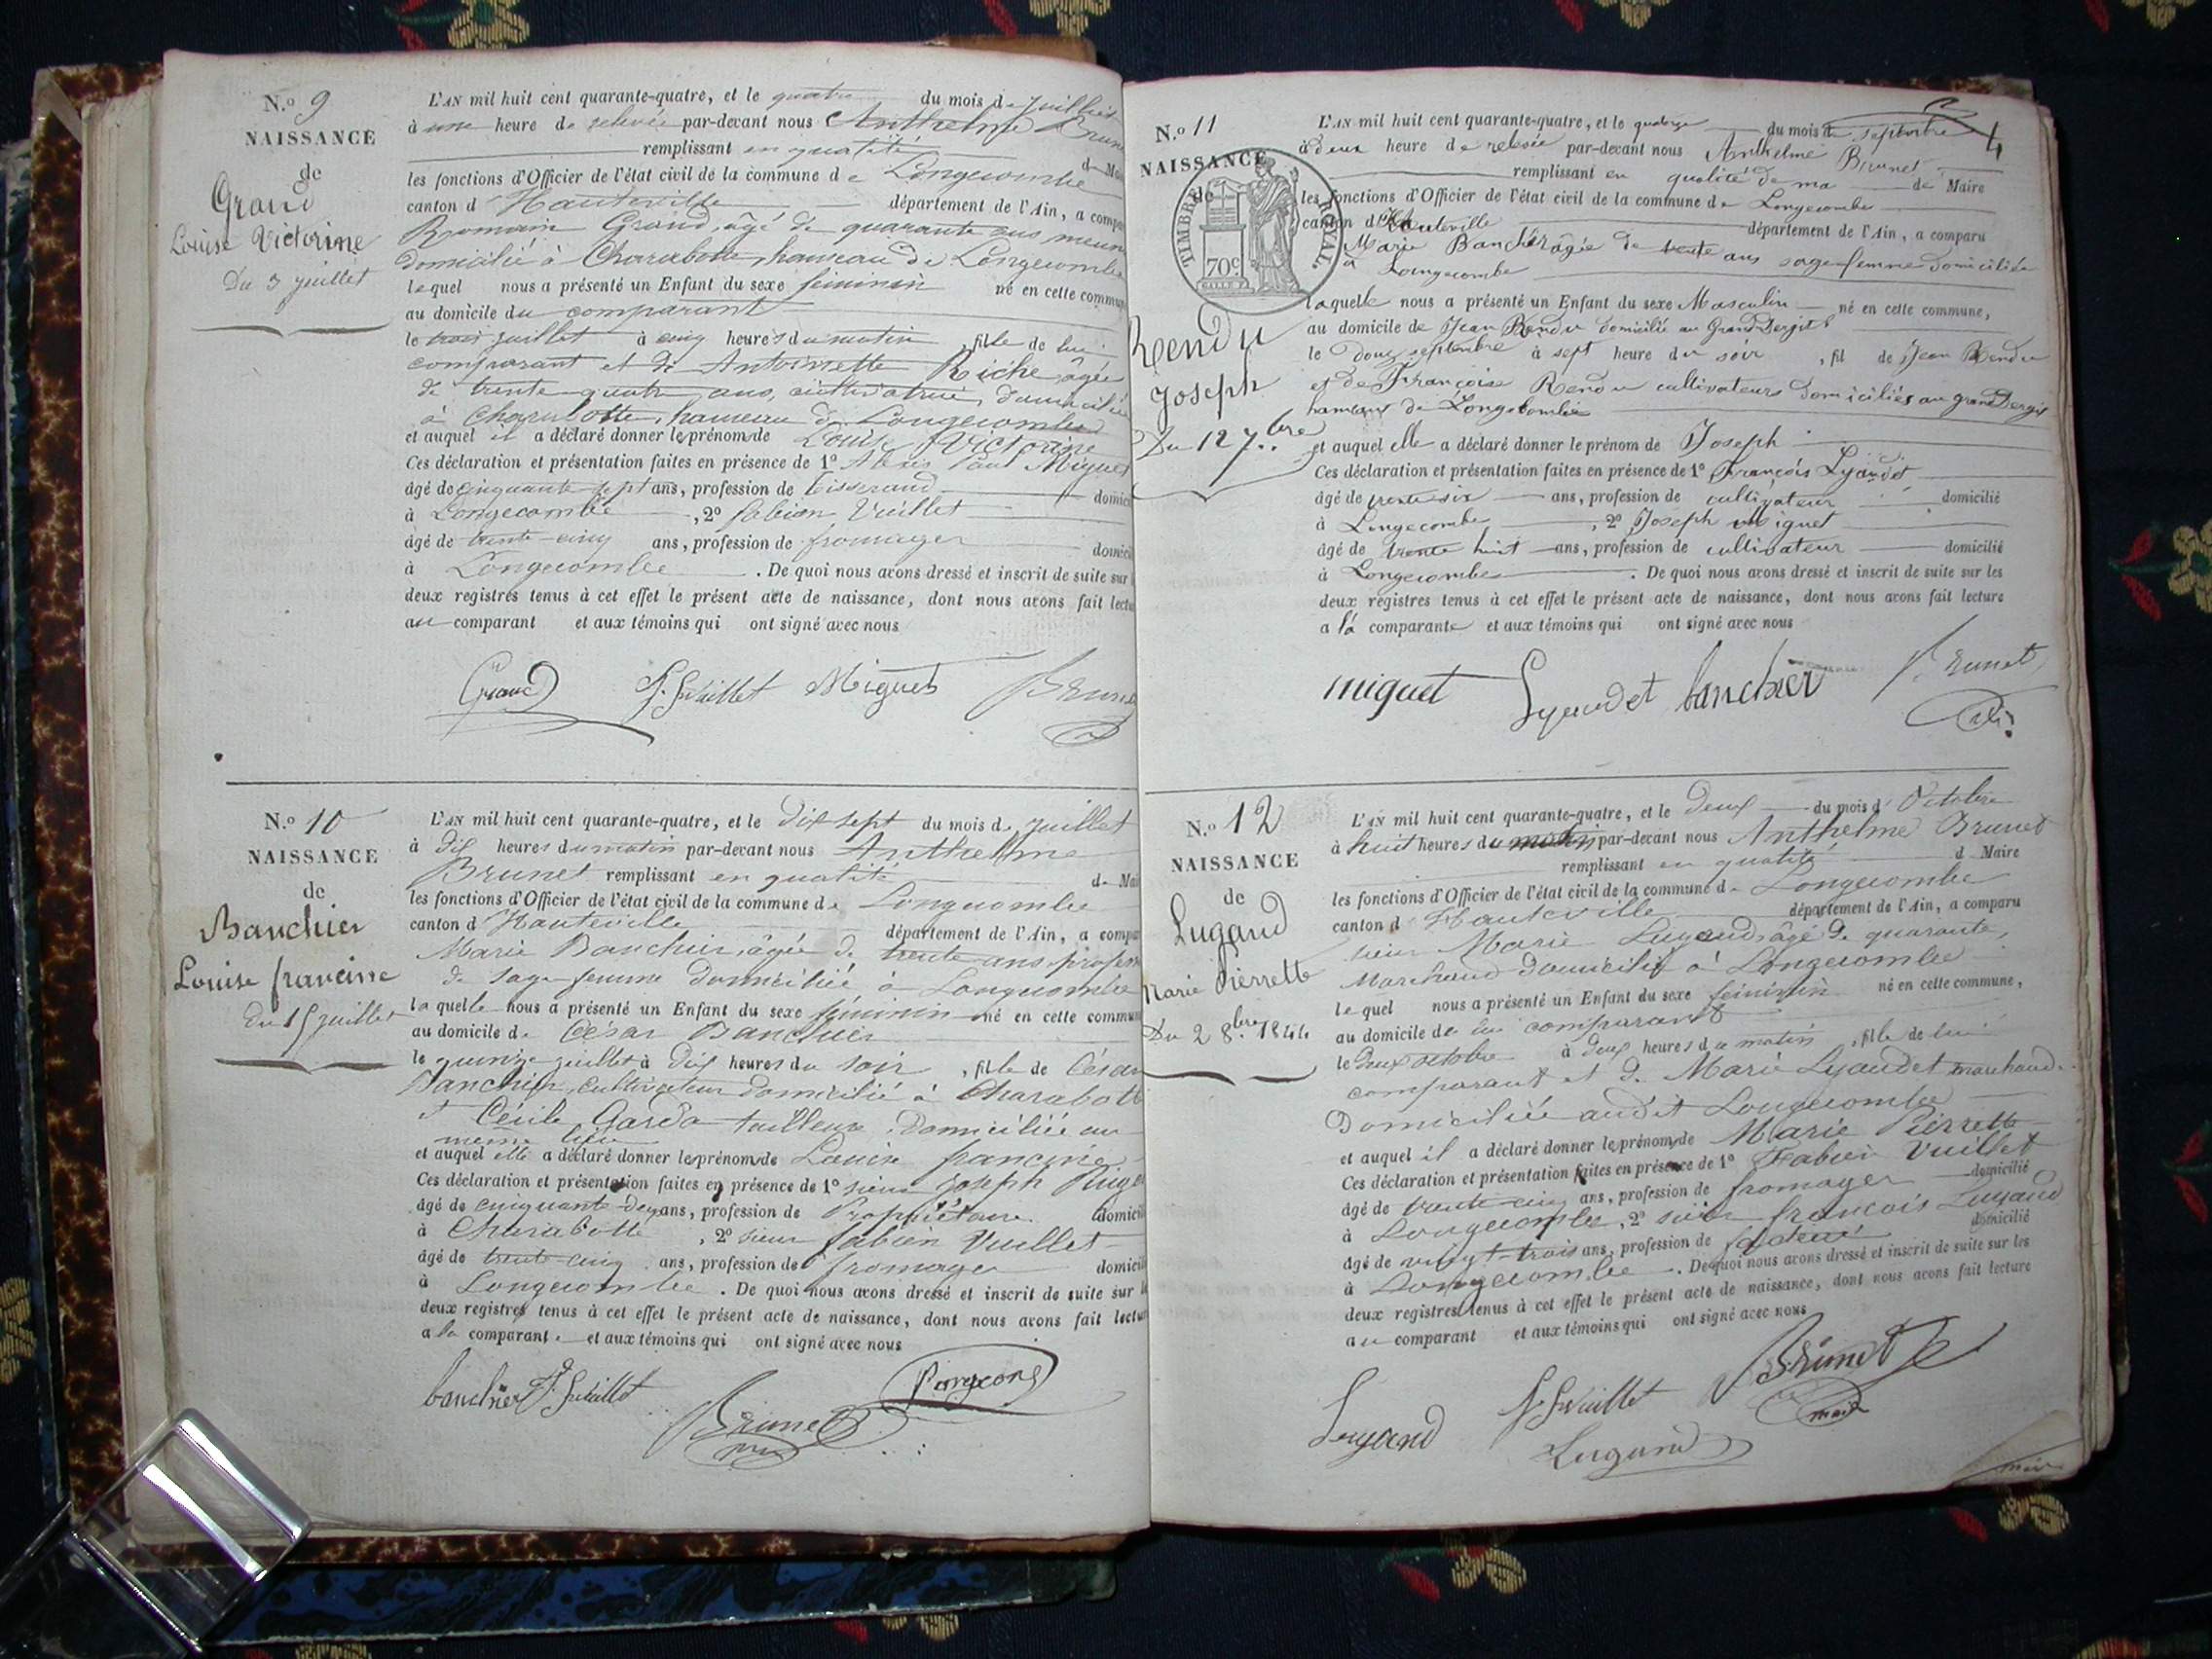 N.o 9
NAISSANCE
de
Grand
Louise Victorine
Du 3 juillet
L'AN mil huit cent quarante-quatre, et le quatre du mois de juillet
à une heure de relevée par-devant nous Anthelme Brun
remplissant en qualité d Ma
les fonctions d'Officier de l'état civil de la commune de Longecombe
canton d'Hauteville département de l'Ain, a compa
Romain Grand, âgé de quarante ans meun
domicilié à Charabotte, hameau de Longecombe
lequel nous a présenté un Enfant du sexe féminin né en cette commun
au domicile du comparant
le trois juillet à cinq heures du matin, fille de lui
comparant et de Antoinette Riche âgée
de trente quatre ans, cultivatrice, domiciliée
à Charabotte, hameau de Longecombe
et auquel il a déclaré donner les prénoms de Louise Victorine
Ces déclaration et présentation faites en présence de 1o Alexis Paul Miguet
âgé de cinquante-sept ans, profession de tisserand domici
à Longecombe, 2o fabien Vuillet
âgé de trente-cinq ans, profession de fromager domici
à Longecombe. De quoi nous avons dressé et inscrit de suite sur
deux registres tenus à cet effet le présent acte de naissance, dont nous avons fait lectu
au comparant et aux témoins qui ont signé avec nous
Grand f. Vuillet Miguet Brunet
N.o 10
NAISSANCE
de
Banchier
Louise francine
du 15 juillet
L'AN mil huit cent quarante-quatre, et le dix sept du mois de juillet
à dix heures du matin par-devant nous Anthelme
Brunet remplissant en qualité de Mai
les fonctions d'Officier de l'état civil de la commune de Longecombe
canton d'Hauteville département de l'Ain, a compa
Marie Banchier, âgée de trente ans profess
de sage femme domiciliée à Longecombe
laquelle nous a présenté un Enfant du sexe féminin né en cette commun
au domicile de César Banchier
le quinze juillet à dix heures du soir, fille de César
Banchier, cultivateur domicilié à Charabott
et Cécile Garda tailleuse, domiciliée au
meme lieu
et auquel elle a déclaré donner les prénoms de Louise francine
Ces déclaration et présentation faites en présence de 1o sieur Joseph
âgé de cinquante-deux ans, profession de Propriétaire domicil
à Charabotte, 2o sieur fabien Vuillet
âgé de trente-cinq ans, profession de fromager domicil
à Longecombe. De quoi nous avons dressé et inscrit de suite sur l
deux registres tenus à cet effet le présent acte de naissance, dont nous avons fait lectur
a la comparante et aux témoins qui ont signé avec nous
banchier f. Vuillet
Brunet
N.o 11
NAISSANCE
de
TIMBRE ROYAL
70c
Rendu
Joseph
Du 12 7bre
4
L'AN mil huit cent quarante-quatre, et le quatorze du mois de septembre
à deux heure de relevée par-devant nous Anthelme Brunet
remplissant en qualité de ma de Maire
les fonctions d'Officier de l'état civil de la commune de Longecombe
canton d'Hauteville département de l'Ain, a comparu
Marie Banchier âgée de trente ans sage femme domiciliée
à Longecombe
laquelle nous a présenté un Enfant du sexe Masculin né en cette commune,
au domicile de Jean Rendu domicilié au Grand Dergis
le Douze septembre à sept heure du soir, fil de Jean Rendu
et de Françoise Rendu cultivateurs domiciliés au grand Dergis
hameaux de Longecombe
et auquel elle a déclaré donner le prénom de Joseph
Ces déclaration et présentation faites en présence de 1o François Lyaudet
âgé de trente six ans, profession de cultivateur domicilié
à Longecombe, 2o Joseph Miguet
âgé de trente huit ans, profession de cultivateur domicilié
à Longecombe. De quoi nous avons dressé et inscrit de suite sur les
deux registres tenus à cet effet le présent acte de naissance, dont nous avons fait lecture
a la comparante et aux témoins qui ont signé avec nous
miguet Lyaudet banchier Brunet
N.o 12
NAISSANCE
de
Lugand
Marie Pierrette
Du 2 8bre 1844
L'AN mil huit cent quarante-quatre, et le deux du mois d'Octobre
à huit heures du matin par-devant nous Anthelme Brunet
remplissant en qualité d Maire
les fonctions d'Officier de l'état civil de la commune de Longecombe
canton d'Hauteville département de l'Ain, a comparu
sieur Marie Lugand, âgé de quarante,
Marchand domicilié à Longecombe
lequel nous a présenté un Enfant du sexe féminin né en cette commune,
au domicile de lui comparant
le deux octobre à deux heures du matin, fille de lui
comparant et de Marie Lyaudet marchand
Domiciliée audit Longecombe
et auquel il a déclaré donner les prénoms de Marie Pierrette
Ces déclaration et présentation faites en présence de 1o Fabien Vuillet
âgé de trente-cinq ans, profession de fromager domicilié
à Longecombe, 2o sieur francois Lugand
âgé de vingt-trois ans, profession de domicilié
à Longecombe. De quoi nous avons dressé et inscrit de suite sur les
deux registres tenus à cet effet le présent acte de naissance, dont nous avons fait lecture
au comparant et aux témoins qui ont signé avec nous
Lugand f. Vuillet Brunet
Lugand maire